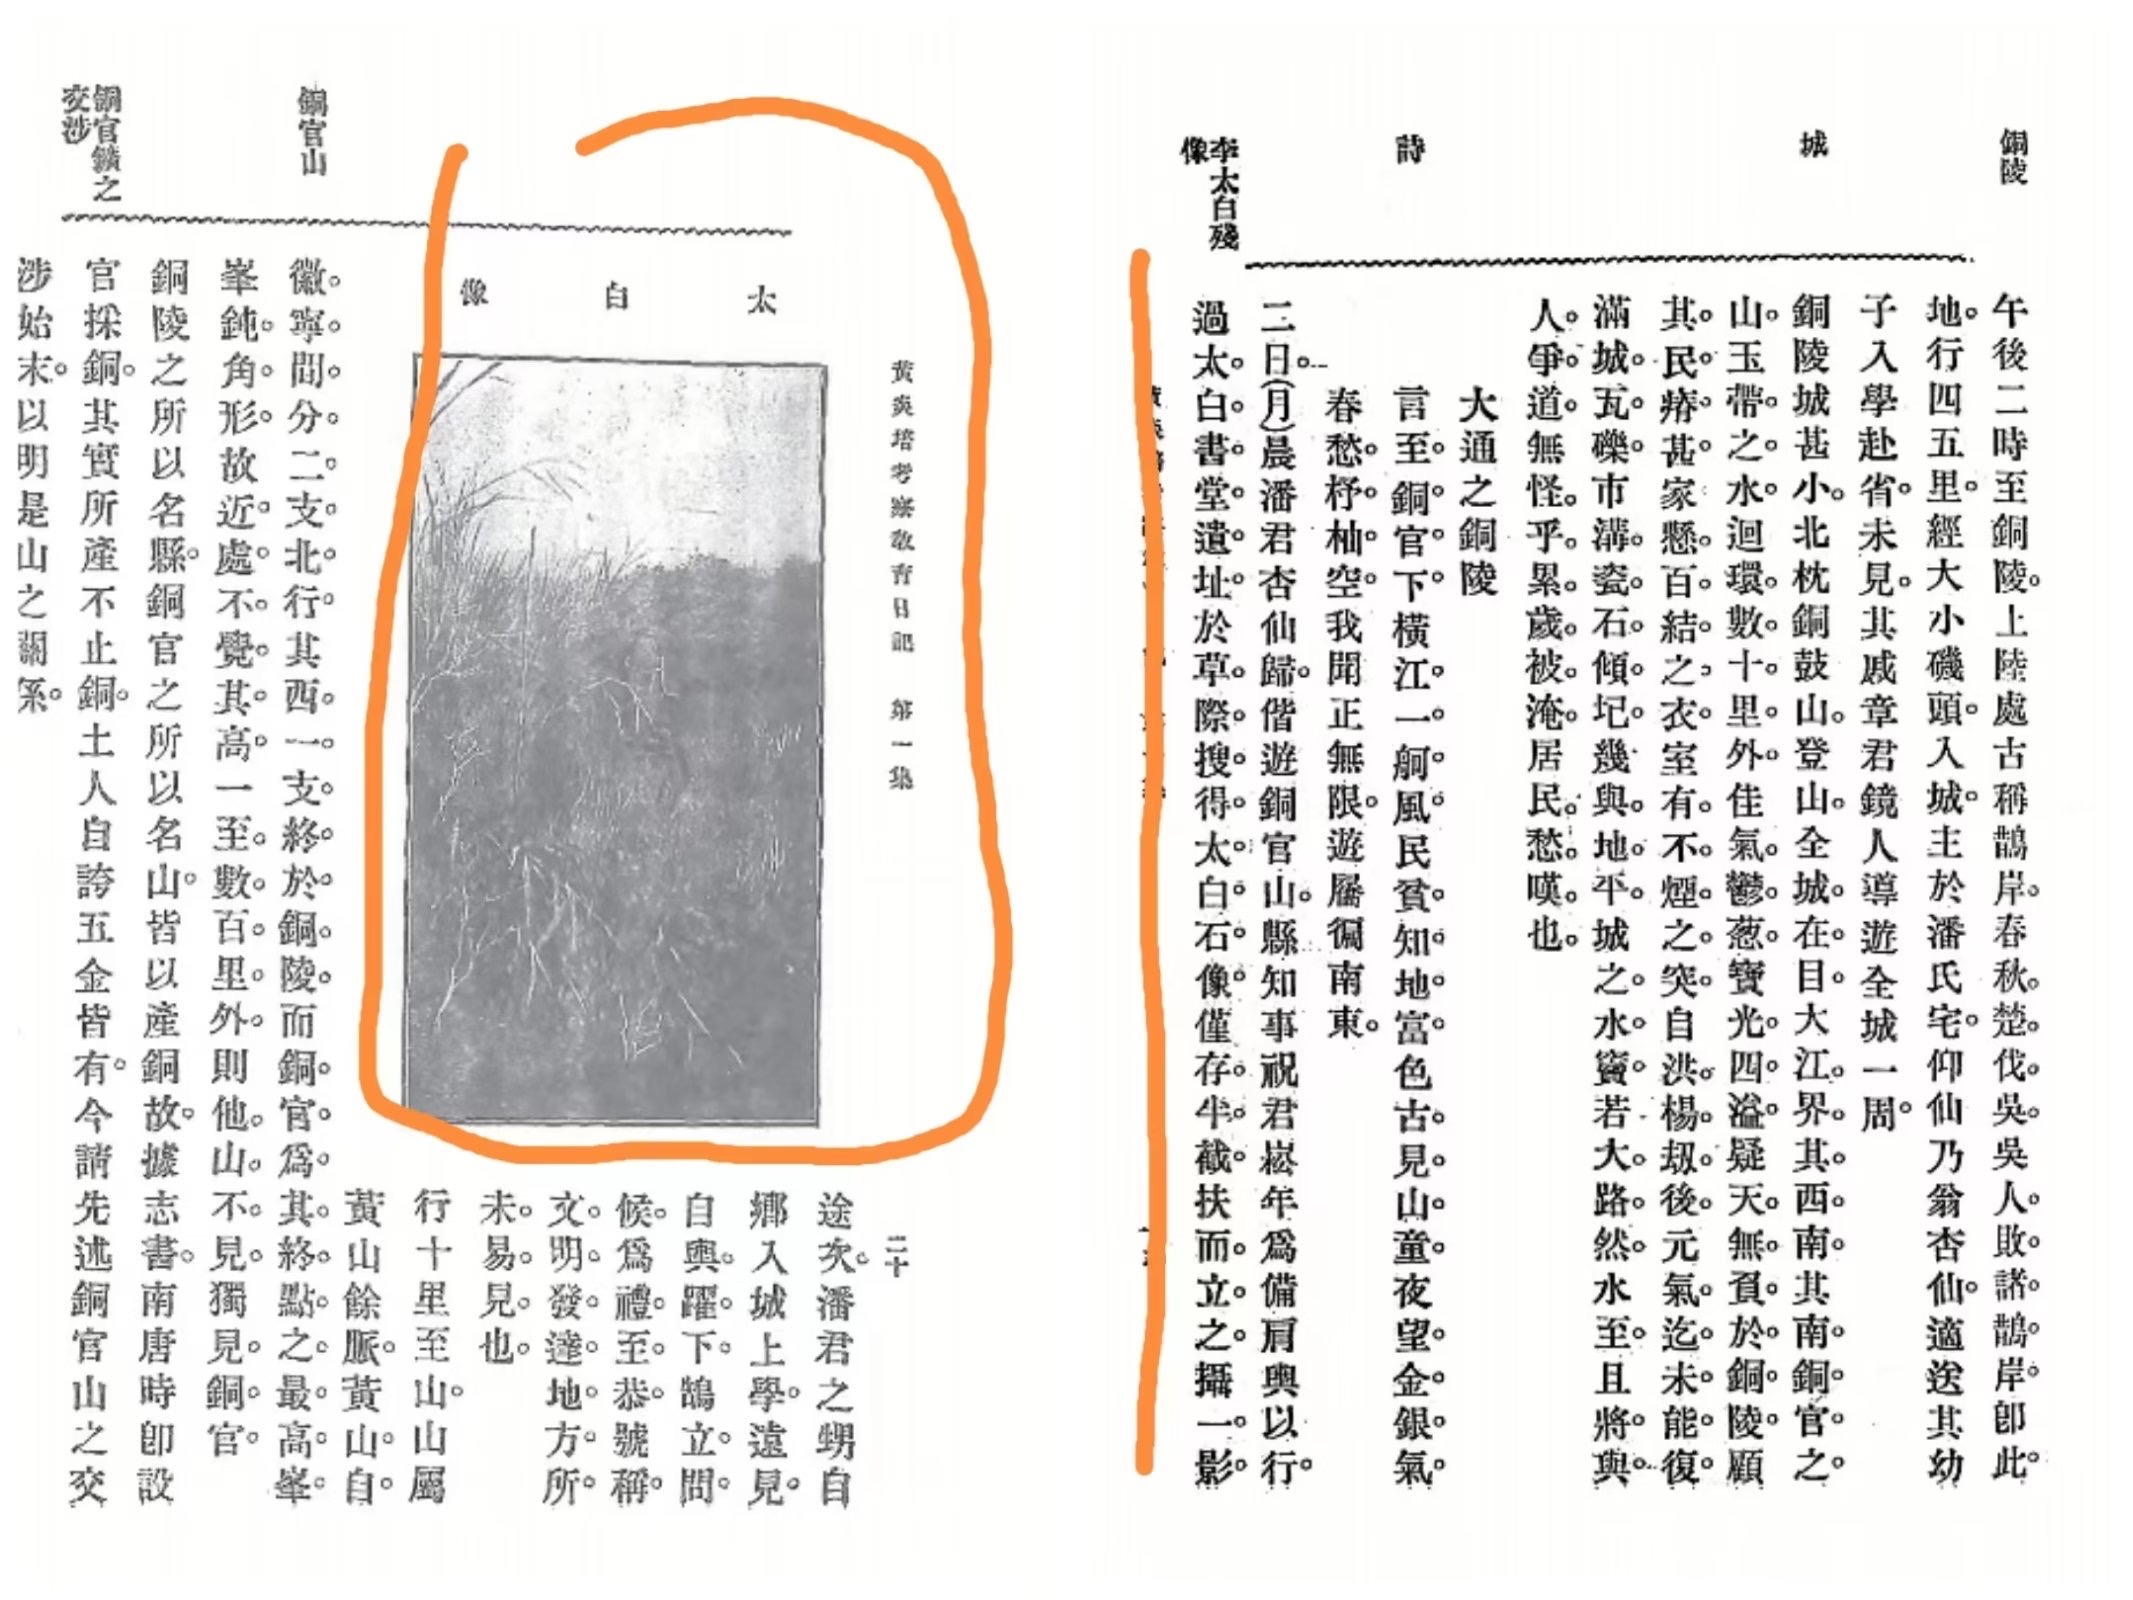 銅陵
城
詩
李太白殘
像
午後二時至銅陵。上陸處古稱鵲岸。春秋。楚。伐。吳。吳人。敗。諸。鵲。岸。卽此。
地。行四五里。經大小磯頭。入城。主於潘氏宅。仰仙乃翁杏仙。適送其幼
子入學赴省。未見。其戚章君鏡人導遊全城一周。
銅陵城甚小。北枕銅鼓山。登山。全城。在。目。大江。界。其。西南其南銅。官。之。
山。玉帶。之。水。迴環。數。十。里。外。佳氣。鬱。葱。寶光。四。溢。疑天。無。負。於。銅。陵。顧
其。民。瘠。甚。家懸。百。結。之。衣。室有。不。煙。之。突。自洪。楊。刼。後。元氣。迄。未。能。復。
滿城。瓦。礫。市溝。瓷。石。傾。圮。幾與。地。平。城之水。竇。若大。路。然。水至。且將。與。
人。爭。道。無怪。乎。累。歲。被。淹。居民。愁。嘆。也。
大通之銅陵
言至。銅。官。下。橫江。一。舸風。民貧。知。地。富。色古。見。山。童。夜望。金銀。氣。
春愁。杼。柚。空。我聞正無限。遊屬徧南東。
二日。(月)晨潘君杏仙歸。偕遊銅官山。縣知事祝君崧年爲備肩輿以行。
過太。白。書。堂。遺。址。於草。際。搜。得。太白。石。像。僅存。半。截。扶而。立。之。攝一。影。
銅官山
銅官鑛之
交涉
太白像
黃炎培考察敎育日記　第一集
二十
途次。潘君之甥自
鄉入城上學。遠見。
自輿。躍。下。鵠立。問。
候。爲禮。至。恭。號稱。
文。明。發。達。地。方。所。
未。易。見。也。
行十里至山。山屬
黃山餘脈。黃山。自。
徽。寧。間。分。二。支。北。行。其西。一。支。終。於。銅。陵。而銅。官。爲。其。終。點。之。最。高。峯。
峯鈍。角。形。故近。處。不。覺。其。高。一至。數。百。里。外。則他。山。不。見。獨見。銅。官。
銅陵之所以名縣。銅官之所以名山。皆以產銅故。據志書。南唐時卽設
官採銅。其實所產不止銅。土人自誇五金皆有。今請先述銅官山之交
涉始末。以明是山之關係。